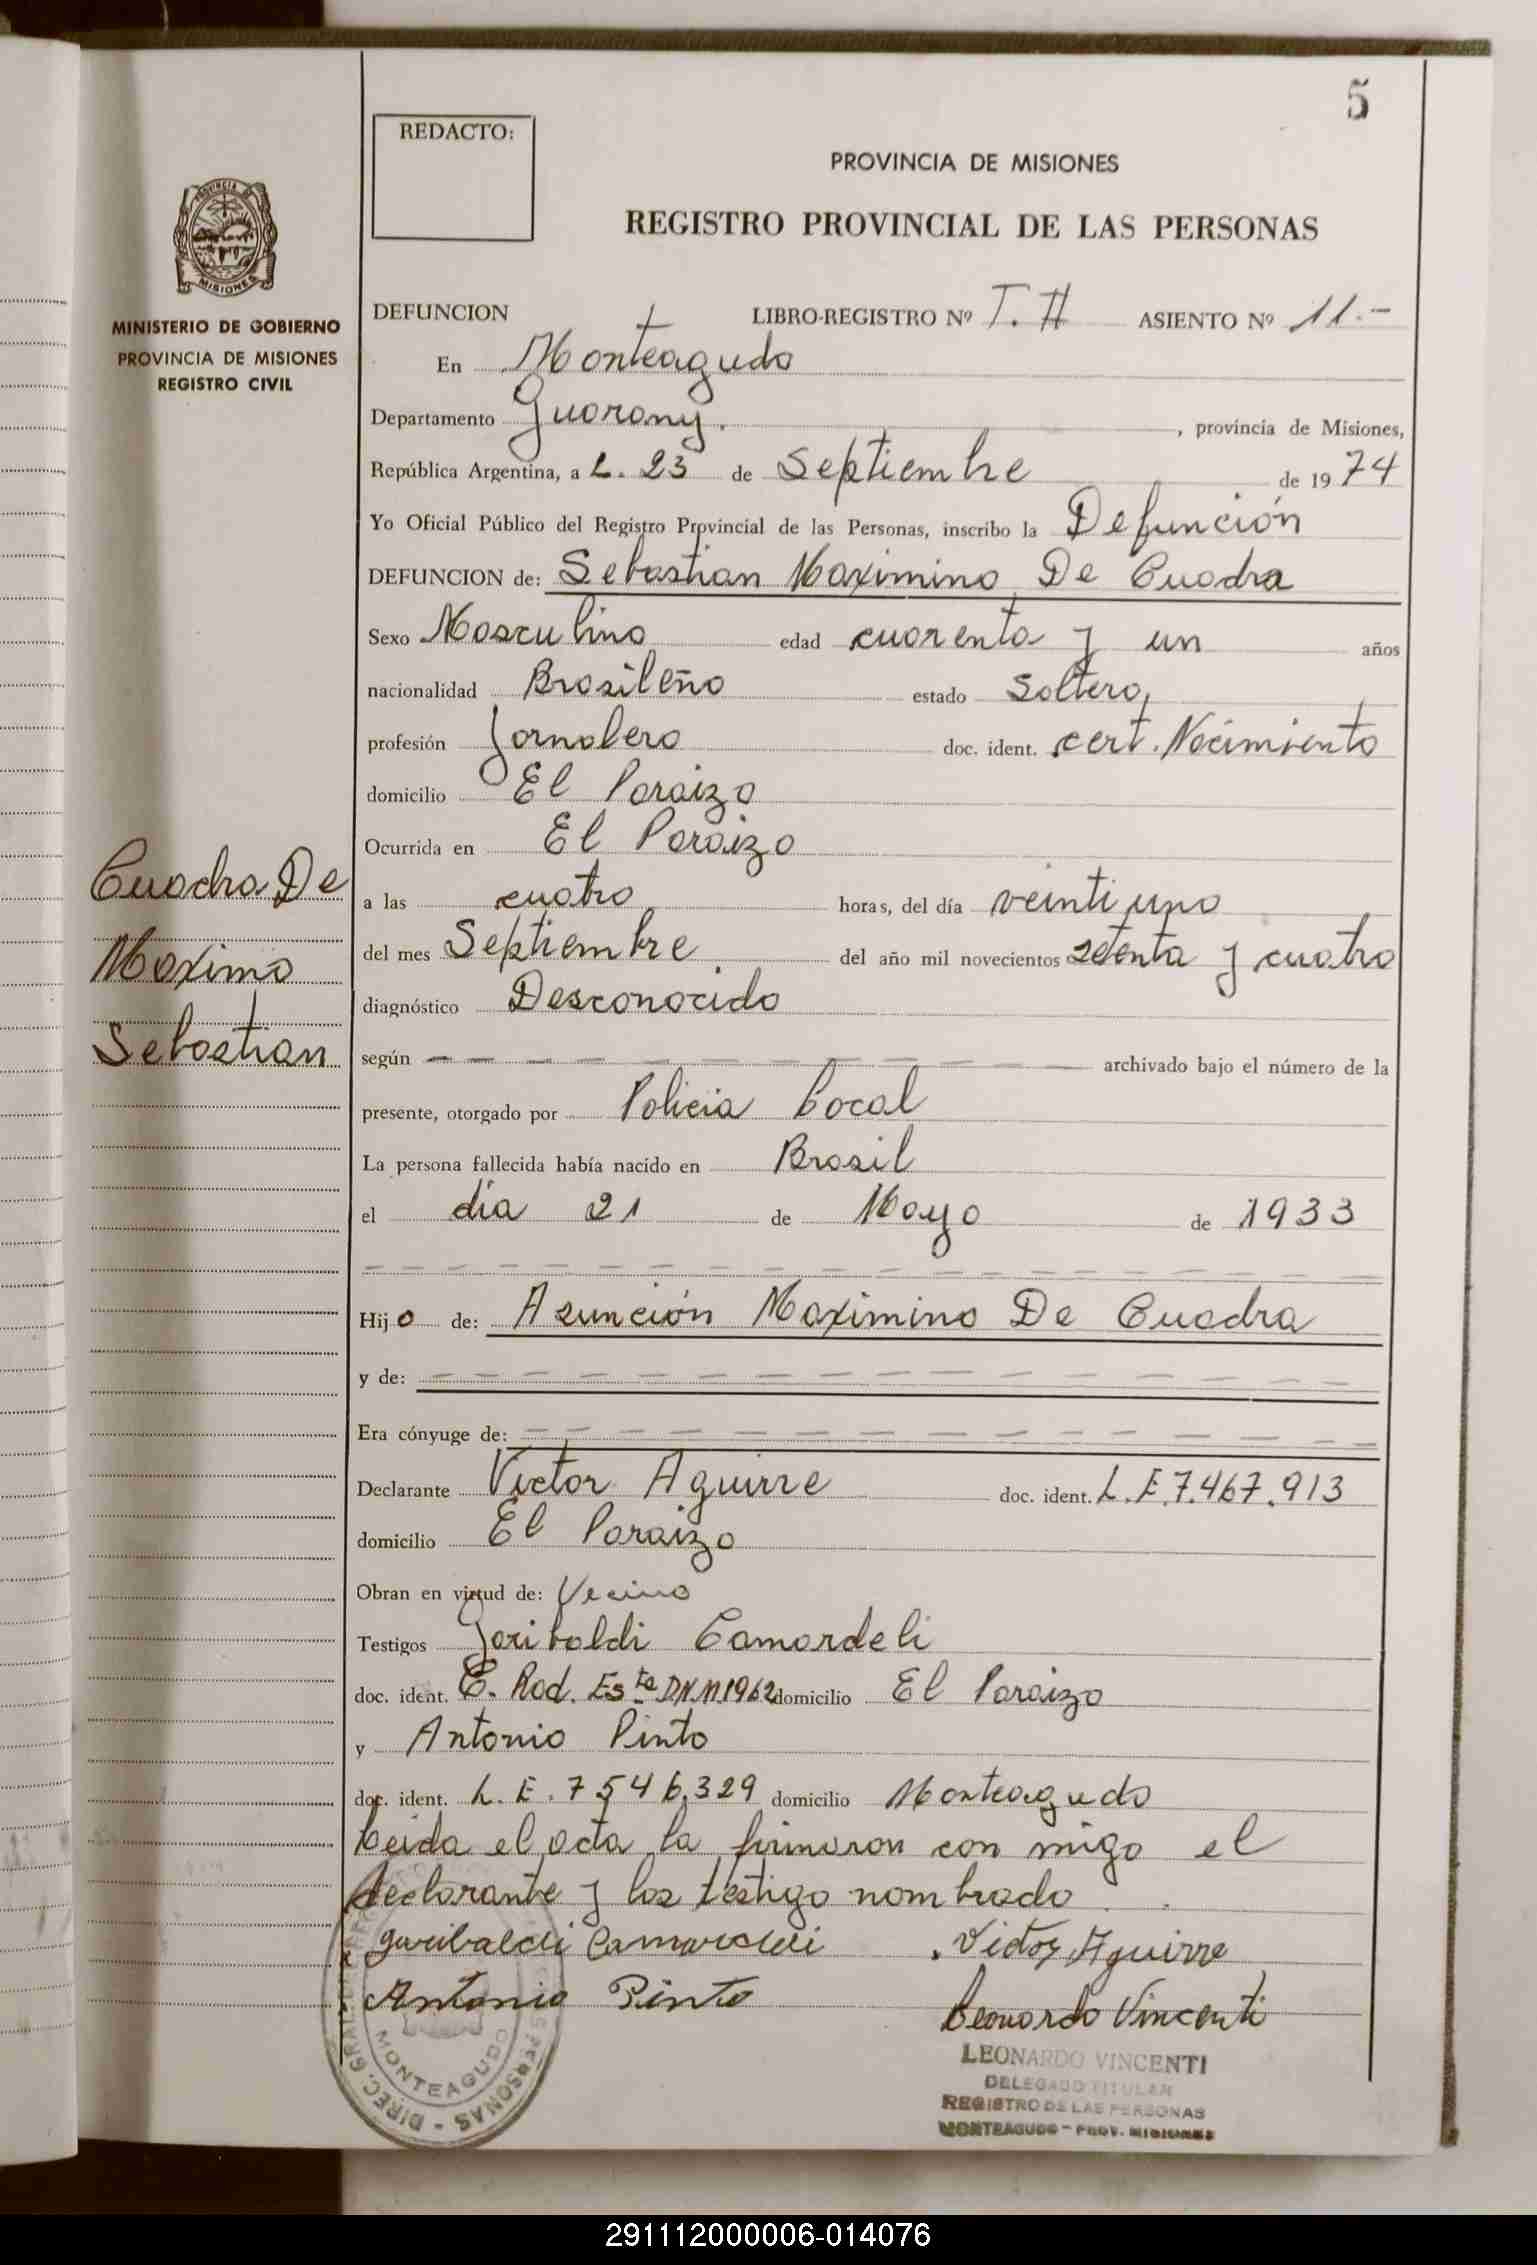 5
REDACTO:
PROVINCIA DE MISIONES
REGISTRO PROVINCIAL DE LAS PERSONAS
MINISTERIO DE GOBIERNO
PROVINCIA DE MISIONES
REGISTRO CIVIL
DEFUNCION LIBRO-REGISTRO Nº T. # ASIENTO Nº 11.-
En Monteagudo
Departamento Guarany. , provincia de Misiones,
República Argentina, a L. 23 de Septiembre de 1974
Yo Oficial Público del Registro Provincial de las Personas, inscribo la Defunción
DEFUNCION de: Sebastian Maximino De Cuadra
Sexo Masculino edad cuarenta y un años
nacionalidad Brasileño estado Soltero,
profesión Jornalero doc. ident. cert. Nacimiento
domicilio El Paraizo
Ocurrida en El Paraizo
Cuadra De
Maximo
Sebastian
a las cuatro horas, del día veinti uno
del mes Septiembre del año mil novecientos setenta y cuatro
diagnóstico Desconocido
según — — — — — — — — — archivado bajo el número de la
presente, otorgado por Policia Local
La persona fallecida había nacido en Brasil
el día 21 de Mayo de 1933
Hijo de: Asunción Maximino De Cuadra
y de: — — — — — — — —
Era cónyuge de: — — — — — — — —
Declarante Victor Aguirre doc. ident. L.E.7.467.913
domicilio El Paraizo
Obran en virtud de: Vecino
Testigos Garibaldi Camardeli
doc. ident. C. Rad. Es ta DNM1962 domicilio El Paraizo
y Antonio Pinto
doc. ident. L. E. 7546.329 domicilio Monteagudo
Leida el acta la firmaron con migo el
declarante y los testigo nombrado
garibaldi Camardeli . Victor Aguirre
Antonio Pinto Leonardo Vincenti
LEONARDO VINCENTI
DELEGADO TITULAR
REGISTRO DE LAS PERSONAS
MONTEAGUDO - PROV. MISIONES
MONTEAGUDO
291112000006-014076